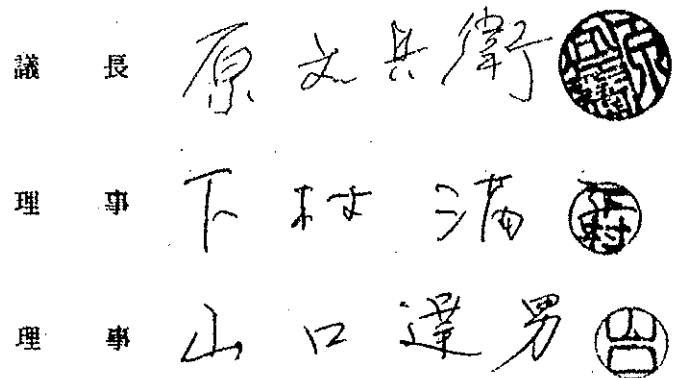 議長 原文兵衛
理事 下村満 下村
理事 山口達男 山口